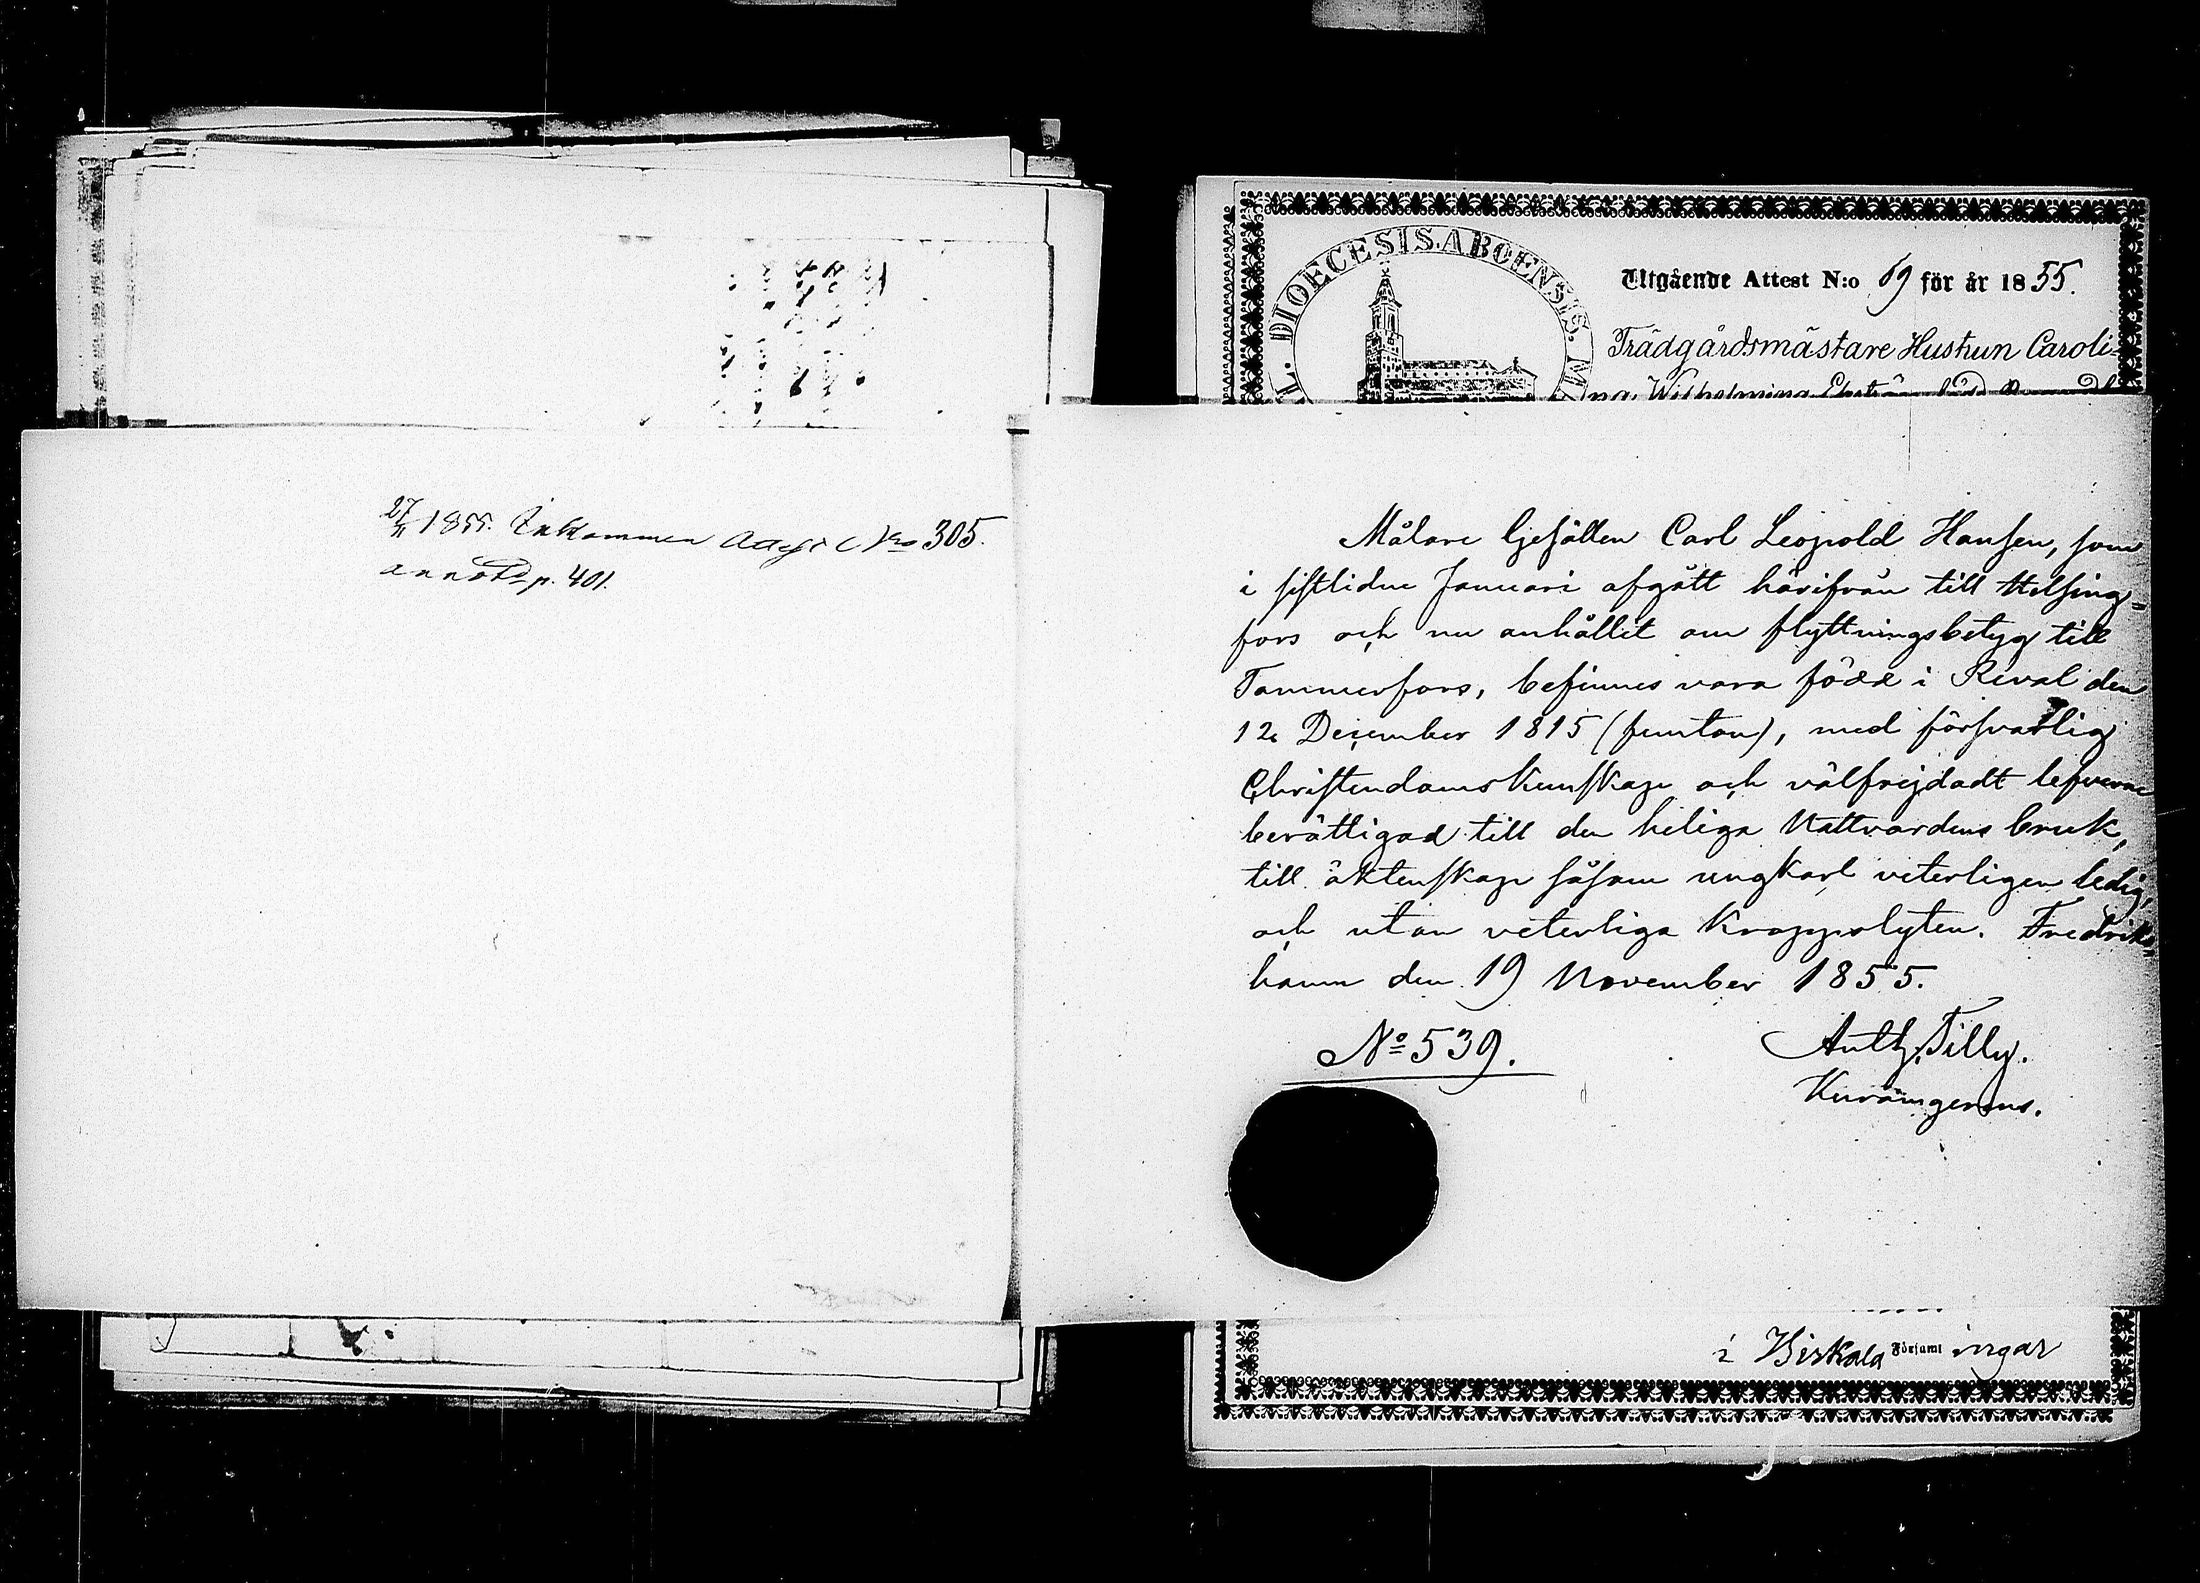 27/11 1855. Inkommen Attest No 305.
annot. p. 401.
SIGILL. DIOECESIS. ABOENSIS. M
Utgående Attest N:o 69 för år 1855.
Trädgårdsmästare Hustrun Caroli-
na Wilhelmina
Målare Gesällen Carl Leopold Hansen, som
i sistlidne Januari afgått härifrån till Helsing=
fors och nu anhållit om flyttningsbetyg till
Tammerfors, befinnes vara född i Reval den
12 December 1815 (femton), med försvarlig
Christendomskunskap och välfrejdadt lefverne
berättigad till den heliga Nattvardens bruk,
till äktenskap såsom ungkarl veterligen ledig,
och utan veterliga kroppslyten. Fredriks
hamn den 19 November 1855.
No 539.
Anth. Tilly.
i Birkala Församl ingar